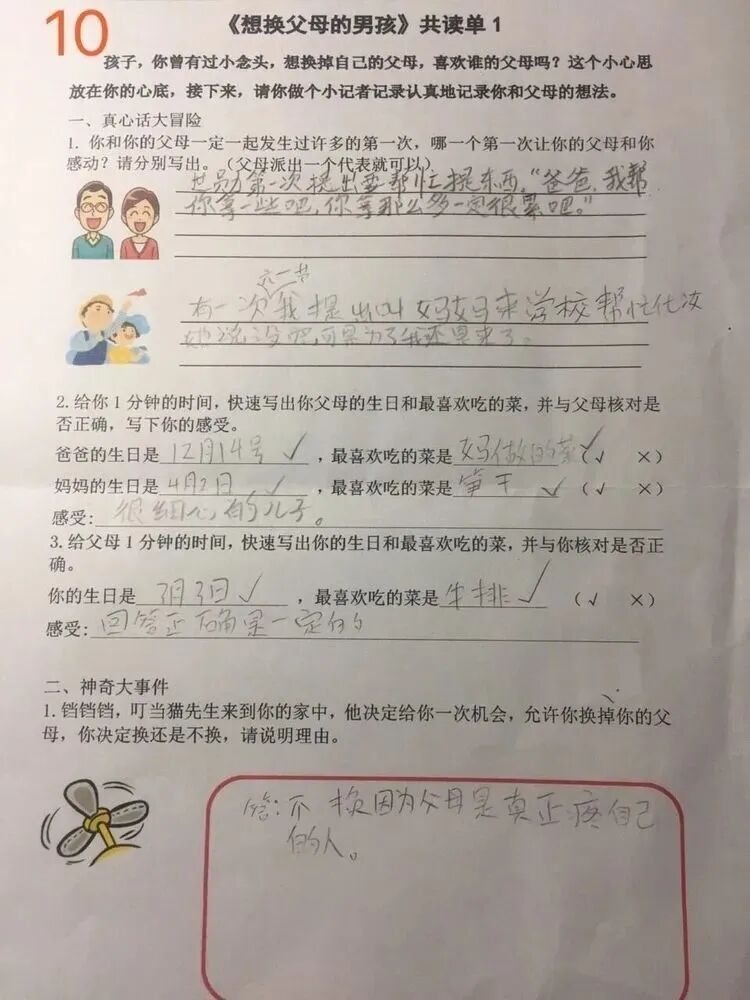 10
《想换父母的男孩》共读单 1
孩子，你曾有过小念头，想换掉自己的父母，喜欢谁的父母吗？这个小心思
放在你的心底，接下来，请你做个小记者记录认真地记录你和父母的想法。
一、真心话大冒险
1. 你和你的父母一定一起发生过许多的第一次，哪一个第一次让你的父母和你
感动？请分别写出。（父母派出一个代表就可以）
第一次提出要帮忙提东西，“爸爸，我帮
你拿一些吧，你拿那么多一定很累吧。”
六一节
有一次我提出叫妈妈来学校帮忙化妆
她说没吧，可是为了我还是来了。
2. 给你 1 分钟的时间，快速写出你父母的生日和最喜欢吃的菜，并与父母核对是
否正确，写下你的感受。
爸爸的生日是 12月14号 ✓ ，最喜欢吃的菜是 妈做的菜 ✓ （√ ×）
妈妈的生日是 4月2日 ✓ ，最喜欢吃的菜是 笋干 ✓ （√ ×）
感受: 很细心的儿子。
3. 给父母 1 分钟的时间，快速写出你的生日和最喜欢吃的菜，并与你核对是否正
确。
你的生日是 3月3日 ✓ ，最喜欢吃的菜是 牛排 ✓ （√ ×）
感受: 回答正确是一定的
二、神奇大事件
1. 铛铛铛，叮当猫先生来到你的家中，他决定给你一次机会，允许你换掉你的父
母，你决定换还是不换，请说明理由。
答：不换因为父母是真正疼自己
的人。